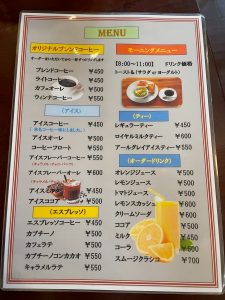 MENU
オリジナルブレンドコーヒー
オーダーをいただいてから一杯ずつドリップします
ブレンドコーヒー ¥450
ライトコーヒー ¥450
カフェオーレ ¥500
ウィンナコーヒー ¥550
〈アイス〉
アイスコーヒー ¥450
アイスオーレ ¥500
コーヒーフロート ¥550
アイスフレーバーコーヒー ¥550
アイスフレーバーオーレ ¥600
アイスミルク ¥450
アイスココア ¥500
〈エスプレッソ〉
エスプレッソコーヒー ¥450
カプチーノ ¥500
カフェラテ ¥500
カプチーノコンカカオ ¥550
キャラメルラテ ¥550
モーニングメニュー
【8:00~11:00】 ドリンク価格
トースト&(サラダ or ヨーグルト)
〈ティー〉
レギュラーティー ¥450
ロイヤルミルクティー ¥500
アールグレイアイスティー ¥550
〈オーダードリンク〉
オレンジジュース ¥500
レモンジュース ¥500
トマトジュース ¥500
レモンスカッシュ ¥600
クリームソーダ ¥600
ココア ¥500
ミルク ¥450
コーラ ¥500
スムージクラッシュ ¥700